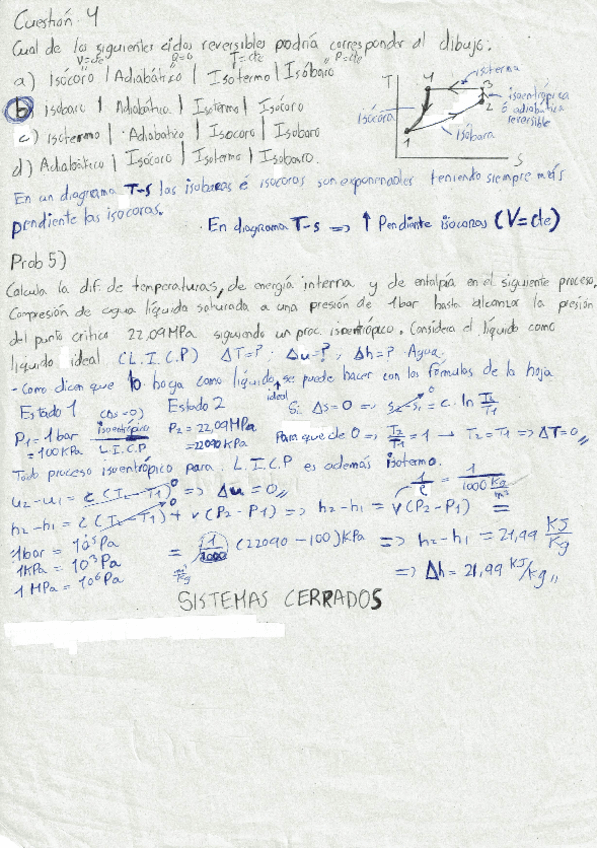 Cuestión 4
Cual de los siguientes ciclos reversibles podría corresponder al dibujo:
V=cte Q=0 T=cte P=cte
a) Isócoro | Adiabático | Isotermo | Isóbaro
b) isobaro | Adiabático | Isotermo | Isócoro
c) isotermo | Adiabático | Isocoro | Isobaro
d) Adiabático | Isócoro | Isotermo | Isobaro.
T 4 isoterma 3
2 isoentrópica ó adiabática reversible
isócora
1 isóbara
S
En un diagrama T-s las isobaras é isocoras son exponenciales teniendo siempre más
pendiente las isocoras. · En diagrama T-s => ↑ Pendiente isocoras (V=cte)
Prob 5)
Calcula la dif. de temperaturas, de energía interna y de entalpía en el siguiente proceso.
Compresión de agua líquida saturada a una presión de 1bar hasta alcanzar la presión
del punto crítico 22,09 MPa siguiendo un proc. isoentrópico. Considera el líquido como
líquido ideal (L.I.C.P) ΔT=? ; Δu=? ; Δh=? Agua
- Como dicen que lo haga como líquido ideal, se puede hacer con las fórmulas de la hoja
Estado 1 (Δs=0) Estado 2 Si Δs=0 => s2-s1 = c. ln T2/T1
P1=1bar isoentrópico P2=22,09MPa
=100KPa L.I.C.P =22090KPa
Para que de 0 => T2/T1 = 1 → T2=T1 => ΔT=0,,
Todo proceso isoentrópico para L.I.C.P es además isotermo.
u2-u1 = c (T2-T1) 0 => Δu=0,, 1/ρ = 1/1000 Kg/m³
h2-h1 = c (T2-T1) 0 + v(P2-P1) => h2-h1 = v(P2-P1) =
1bar = 10⁵Pa
1KPa = 10³Pa
1 MPa = 10⁶Pa
= 1/1000 (22090-100)KPa => h2-h1 = 21,99 KJ/Kg
m³/Kg => Δh = 21,99 KJ/kg,,
SISTEMAS CERRADOS